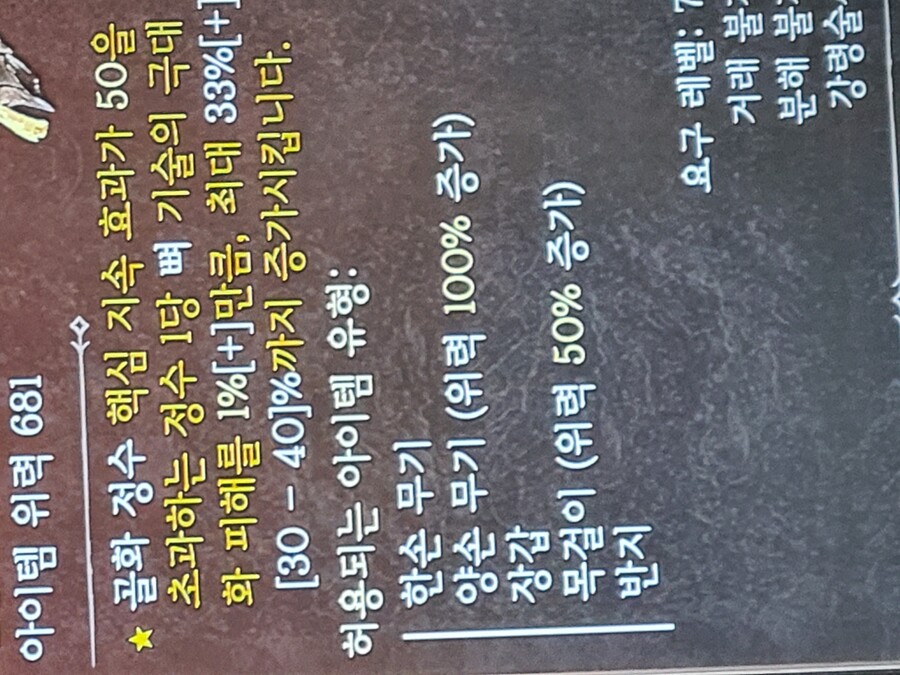 아이템 위력 681
골화 정수 핵심 지속 효과가 50을
초과하는 정수 1당 뼈 기술의 극대
화 피해를 1%[+]만큼, 최대 33%[+]
[30 - 40]%까지 증가시킵니다.
허용되는 아이템 유형:
한손 무기
양손 무기 (위력 100% 증가)
장갑
목걸이 (위력 50% 증가)
반지
요구 레벨: 7
거래 불
분해 불
강령술